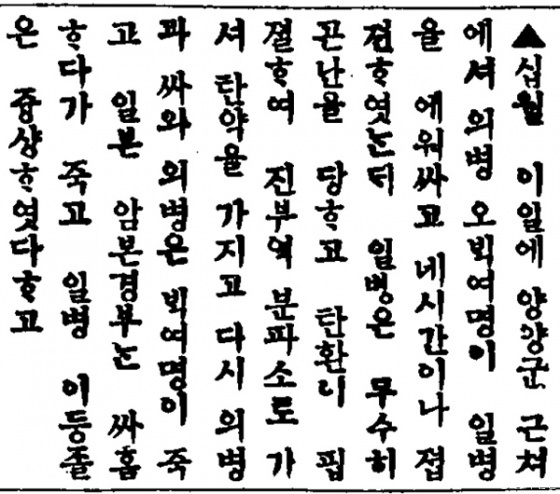 ▲십월 이일에 양양군 근쳐
에셔 의병 오ᄇᆡᆨ여명이 일병
을 에워싸고 네시간이나 졉
젼ᄒᆞ엿ᄂᆞᆫᄃᆡ 일병은 무수히
곤난을 당ᄒᆞ고 탄환이 핍
졀ᄒᆞ여 진부역 분파소로 가
셔 탄약을 가지고 다시 의병
과 싸와 의병은 ᄇᆡᆨ여명이 죽
고 일본 암본경부ᄂᆞᆫ 싸홈
ᄒᆞ다가 죽고 일병 이등졸
은 즁상ᄒᆞ엿다ᄒᆞ고